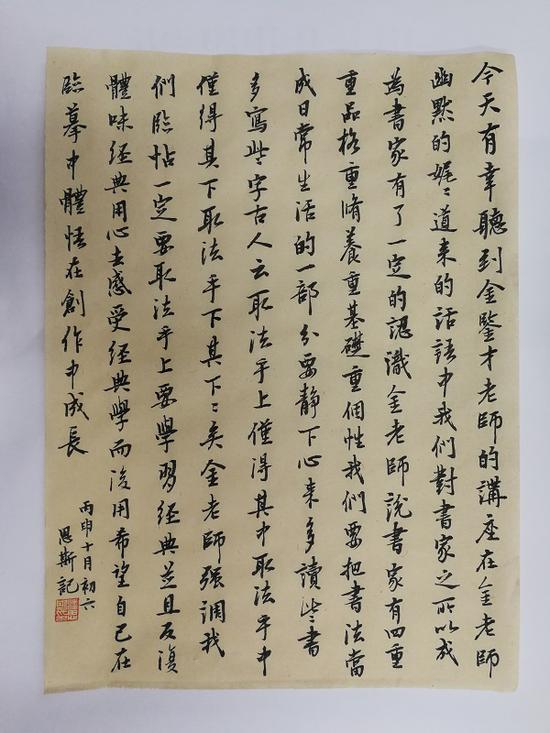 今天有幸聽到金鑒才老師的講座在金老師
幽默的娓〻道来的話語中我們對書家之所以成
為書家有了一定的認識金老師說書家有四重
重品格重脩養重基礎重個性我們要把書法當
成日常生活的一部分要静下心来多讀些書
多寫些字古人云取法乎上僅得其中取法乎中
僅得其下取法乎下其下〻矣金老師强調我
們臨帖一定要取法乎上要學習經典並且反復
體味經典用心去感受經典學而後用希望自己在
臨摹中體悟在創作中成長
丙申十月初六
恩斯記